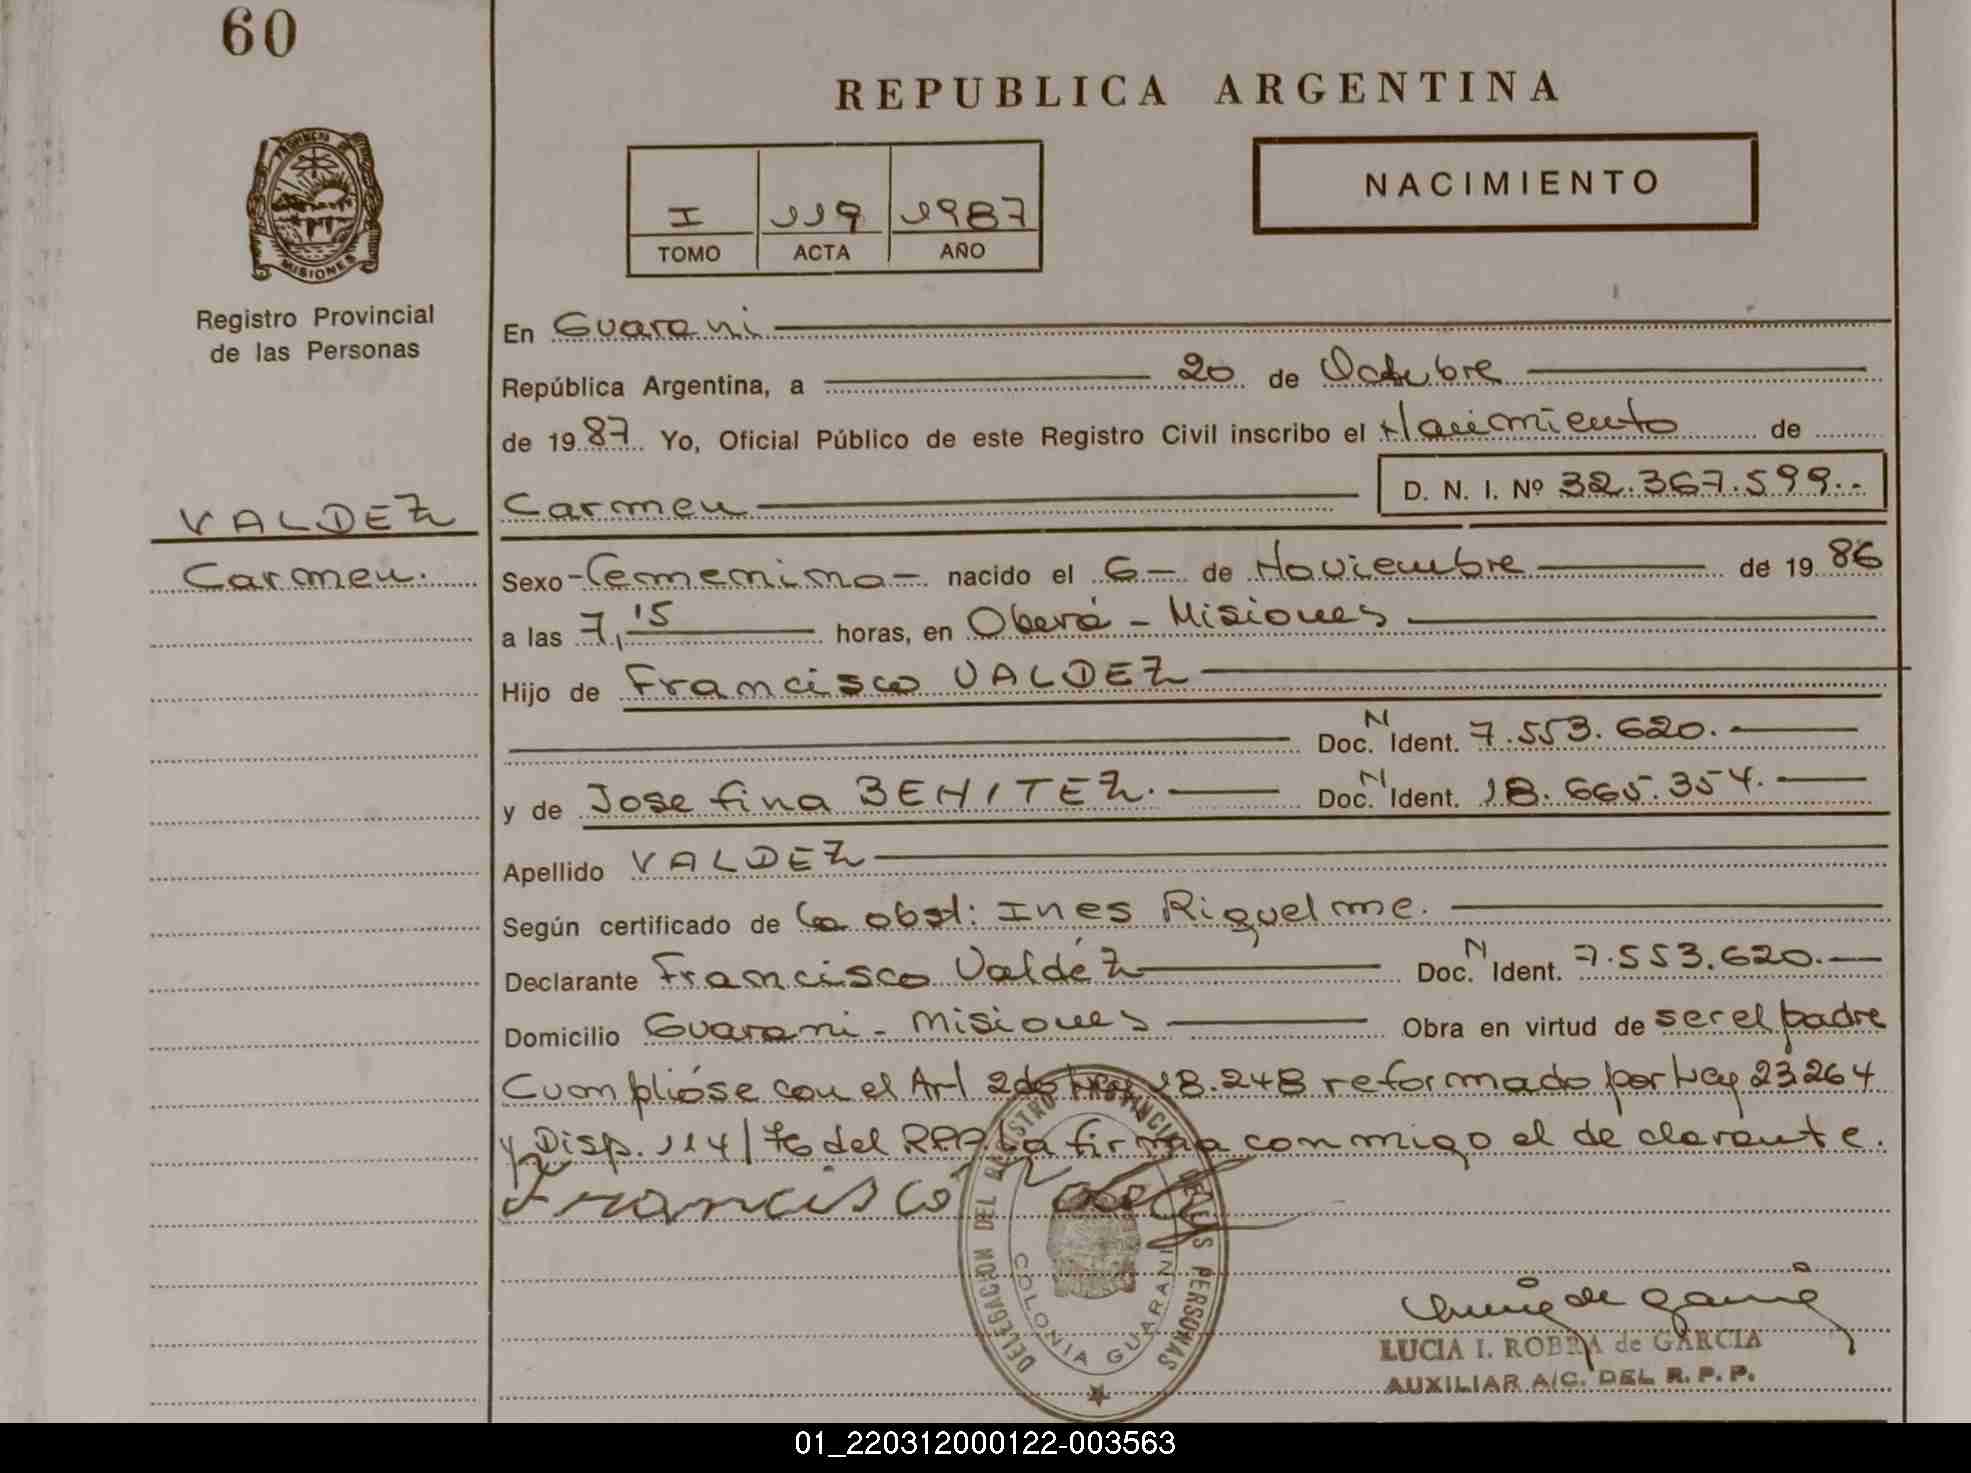 60
REPUBLICA ARGENTINA
NACIMIENTO
I 119 1987
TOMO ACTA AÑO
MISIONES
Registro Provincial
de las Personas
En Guarani
República Argentina, a 20 de Octubre
de 1987 Yo, Oficial Público de este Registro Civil inscribo el Nacimiento de
VALDEZ
Carmen D. N. I. Nº 32.367.599..
Carmen.
Sexo - Femenino - nacido el 6 - de Noviembre de 1986
a las 7,15 horas, en Oberá - Misiones
Hijo de Francisco VALDEZ
Doc. N Ident. 7.553.620.
y de Josefina BENITEZ. Doc. N Ident. 18.665.354.
Apellido VALDEZ
Según certificado de la obst: Ines Riquelme.
Declarante Francisco Valdéz Doc. N Ident. 7.553.620.
Domicilio Guarani - Misiones Obra en virtud de ser el padre
Cumplióse con el Art 2do Ley 18.248 reformado por Ley 23264
y Disp. 114/76 del RPP. La firma conmigo el declarante.
Francisco Valdez
DELEGACION DEL REGISTRO PROVINCIAL DE LAS PERSONAS
COLONIA GUARANI
LUCIA I. ROBRA de GARCIA
AUXILIAR A/C. DEL R. P. P.
01_220312000122-003563